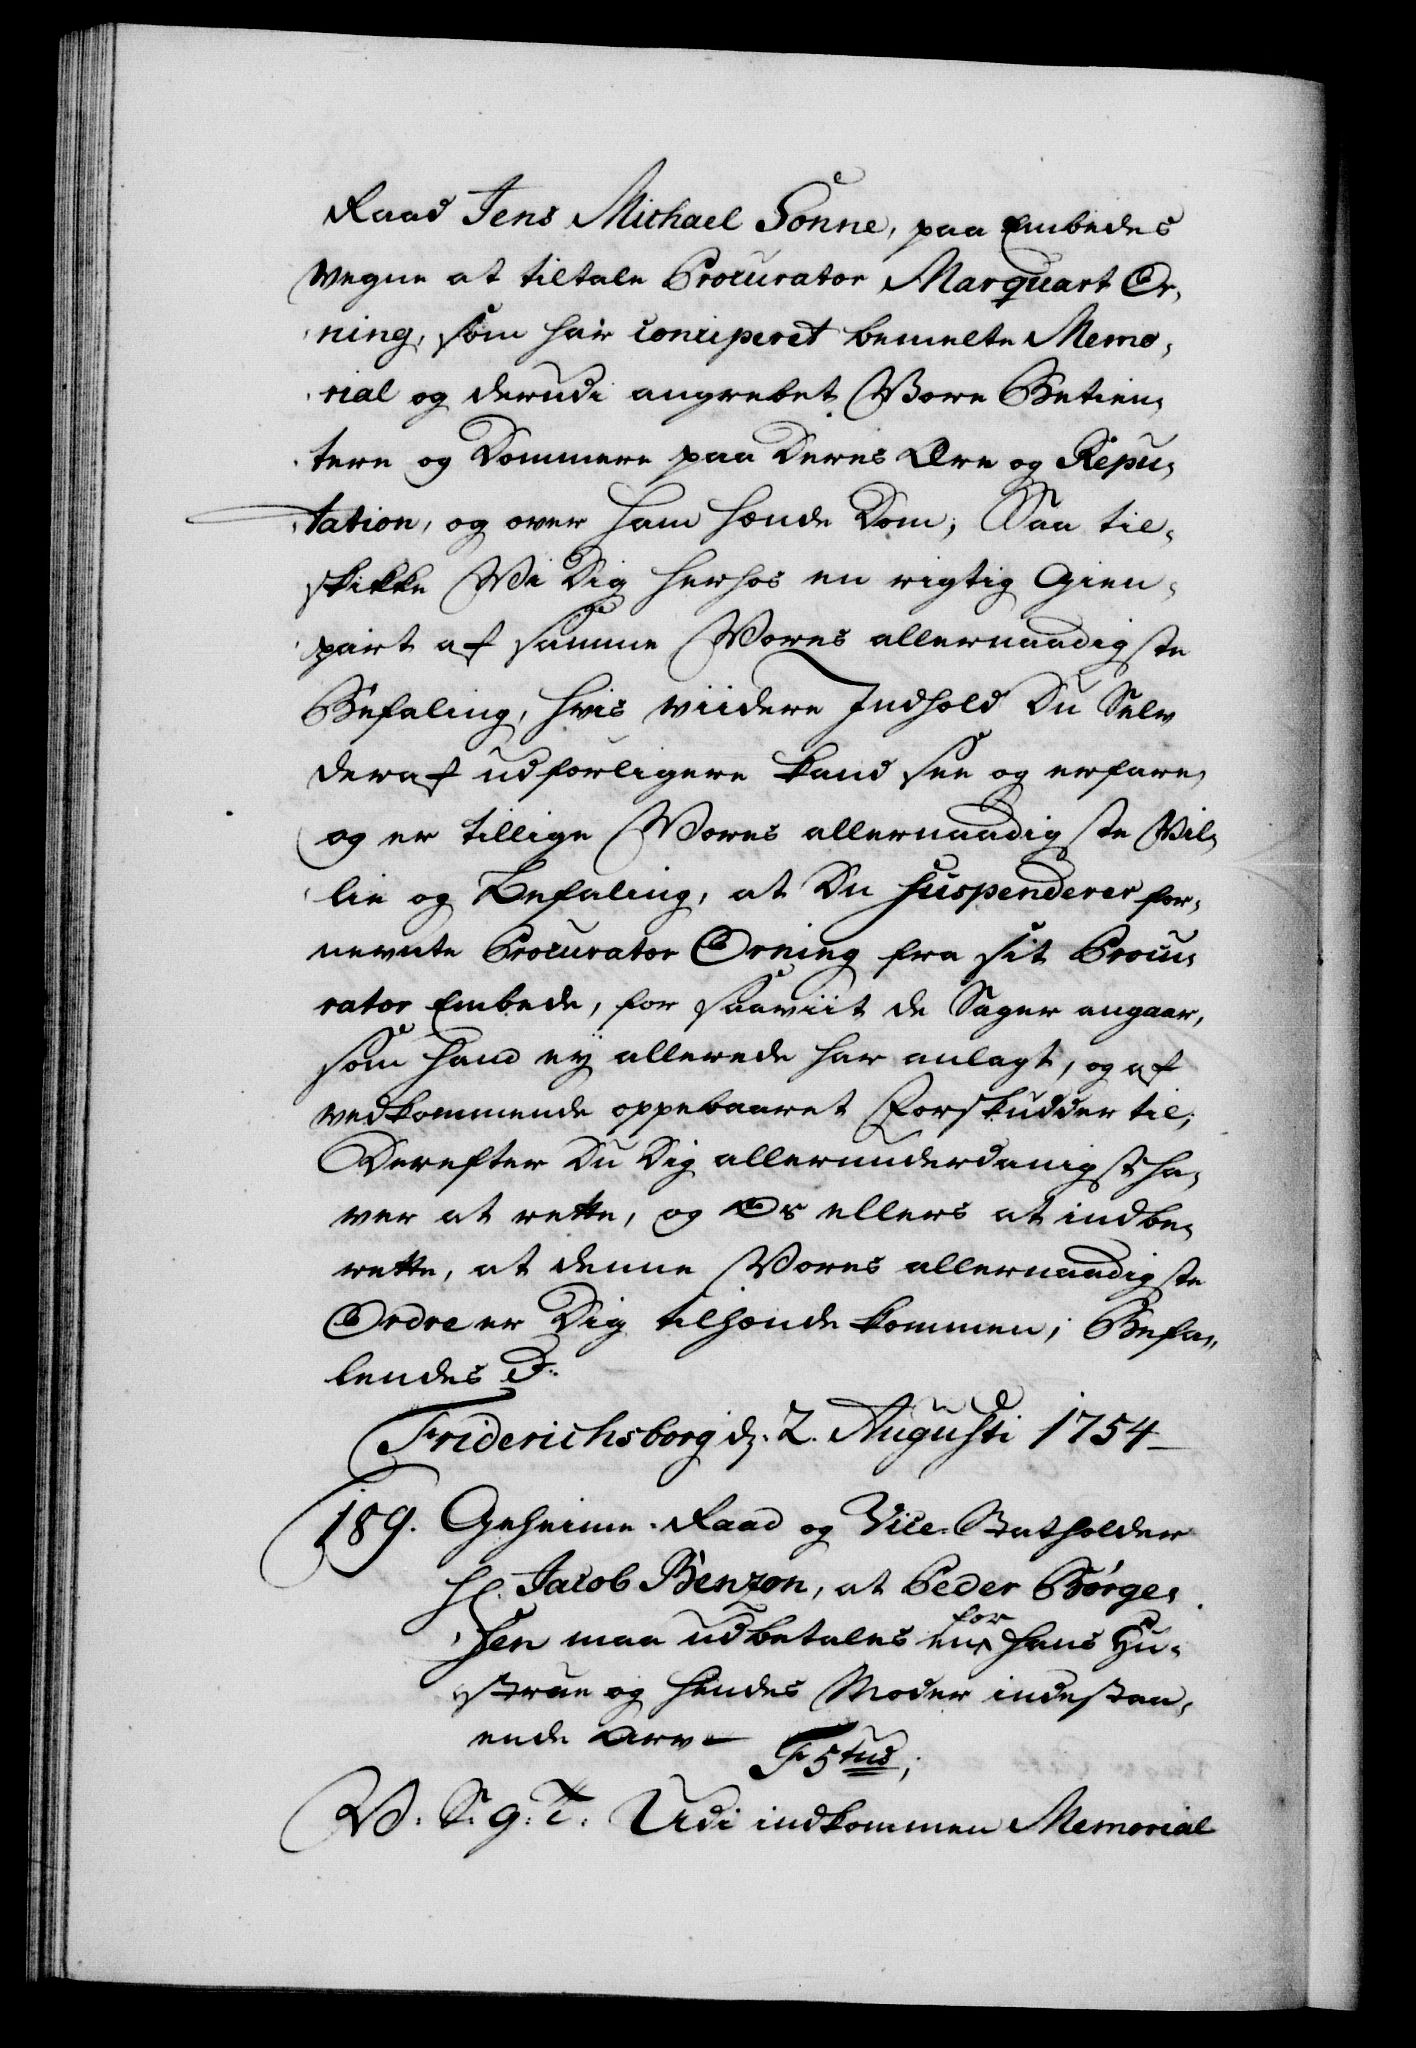 Raad Jens Michael Sonne, paa Embedes
Vegne at tiltale Procurator Marquart Or¬
ning, som har conciperet bemelte Memo¬
rial og derudi angrebet Vore Betien¬
tere og Dommere paa Deres Ære og Repu¬
tation, og over ham hænde Dom; Saa til¬
skikke Vi Dig herhos en rigtig Gien¬
part af samme Vores allernaadigste
Befaling, hvis viidere Indhold Du Selv
deraf udførligere kand see og erfare,
og er tillige Vores allernaadigste Vil¬
lie og Befaling, at Du suspenderer for¬
nevnte Procurator Orning fra sit Procu¬
rator Embede, for saaviit de Sager angaar,
som hand ey allerede har anlagt, og af
vedkommende oppebaaret Forskudder til;
Derefter Du Dig allerunderdanigst ha¬
ver at rette, og Os ellers at indbe¬
rette, at denne Vores allernaadigste
Ordre er Dig tilhænde kommen; Befa¬
lendes D.
Friderichsborg d. 2. Augusti 1754
189. Geheime-Raad og Vice-Statholder
Hr. Jacob Benzon, at Peder Børge¬
sen maa udbetales en for hans Hu¬
strue og hendes Moder indestaa¬
ende Arv
F 5tus;
W. S. G. T. Udi indkommen Memorial